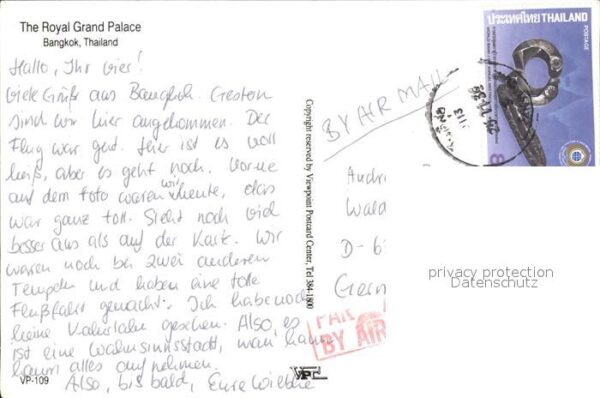 The Royal Grand Palace
Bangkok, Thailand
Hallo, Ihr vier!
Viele Grüße aus Bangkok. Gestern
sind wir hier angekommen. Der
Flug war gut. Hier ist es voll
heiß, aber es geht noch. Vorne
auf dem Foto waren wir heute, das
war ganz toll. Sieht noch viel
besser aus als auf der Karte. Wir
waren noch bei zwei anderen
Tempeln und haben eine tolle
Flußfahrt gemacht. Ich habe noch
keine gesehen. Also, es
ist eine Wahnsinnsstadt, man kann
kaum alles aufnehmen.
Also, bis bald, Eure
VP-109
Copyright reserved by Viewpoint Postcard Center, Tel 384-1800
VPC
BY AIR MAIL
ประเทศไทย THAILAND
POSTAGE
8
1113
Wald
D-6
Germ
privacy protection
Datenschutz
PAR
BY AIR